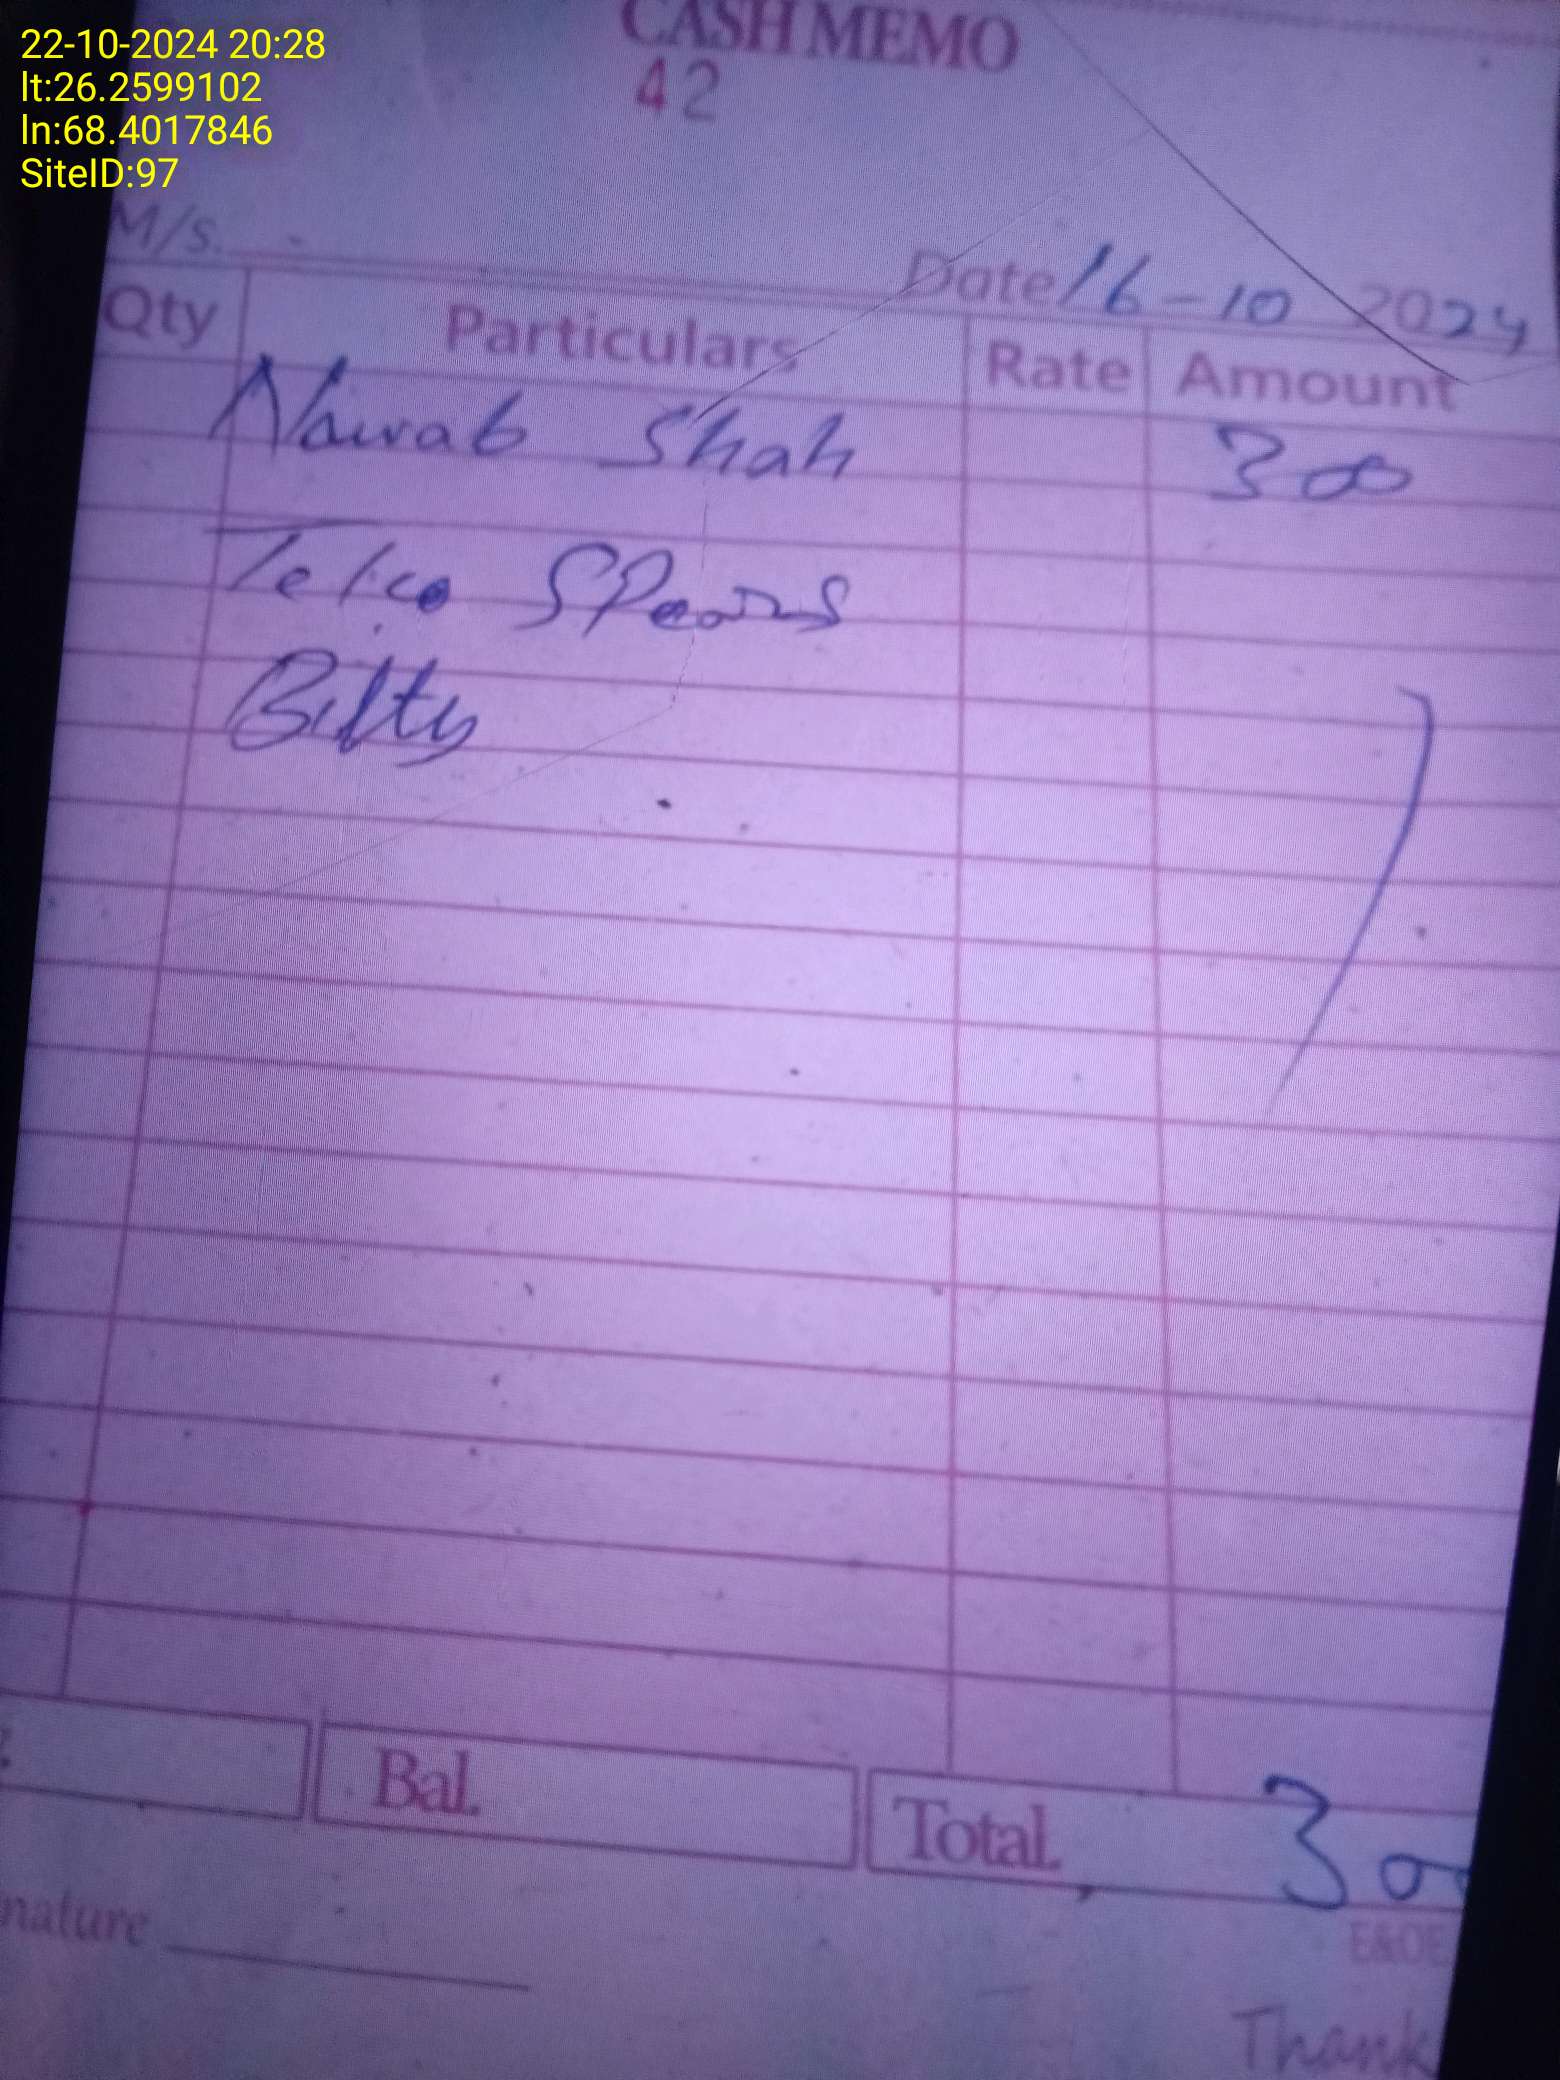 22-10-2024 20:28
lt:26.2599102
ln:68.4017846
SiteID:97
CASH MEMO
42
M/S.
Date 16-10 2024
Qty Particulars Rate Amount
Nawab Shah 300
Telco SPears
Bilty
Bal. Total. 300
nature
E&OE
Thank